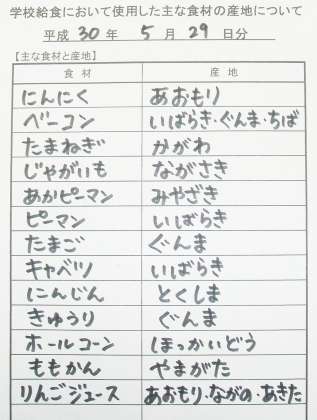 学校給食において使用した主な食材の産地について
平成 30 年 5 月 29 日分
【主な食材と産地】
食材 産地
にんにく あおもり
ベーコン いばらき・ぐんま・ちば
たまねぎ かがわ
じゃがいも ながさき
あかピーマン みやざき
ピーマン いばらき
たまご ぐんま
キャベツ いばらき
にんじん とくしま
きゅうり ぐんま
ホールコーン ほっかいどう
ももかん やまがた
りんごジュース あおもり・ながの・あきた